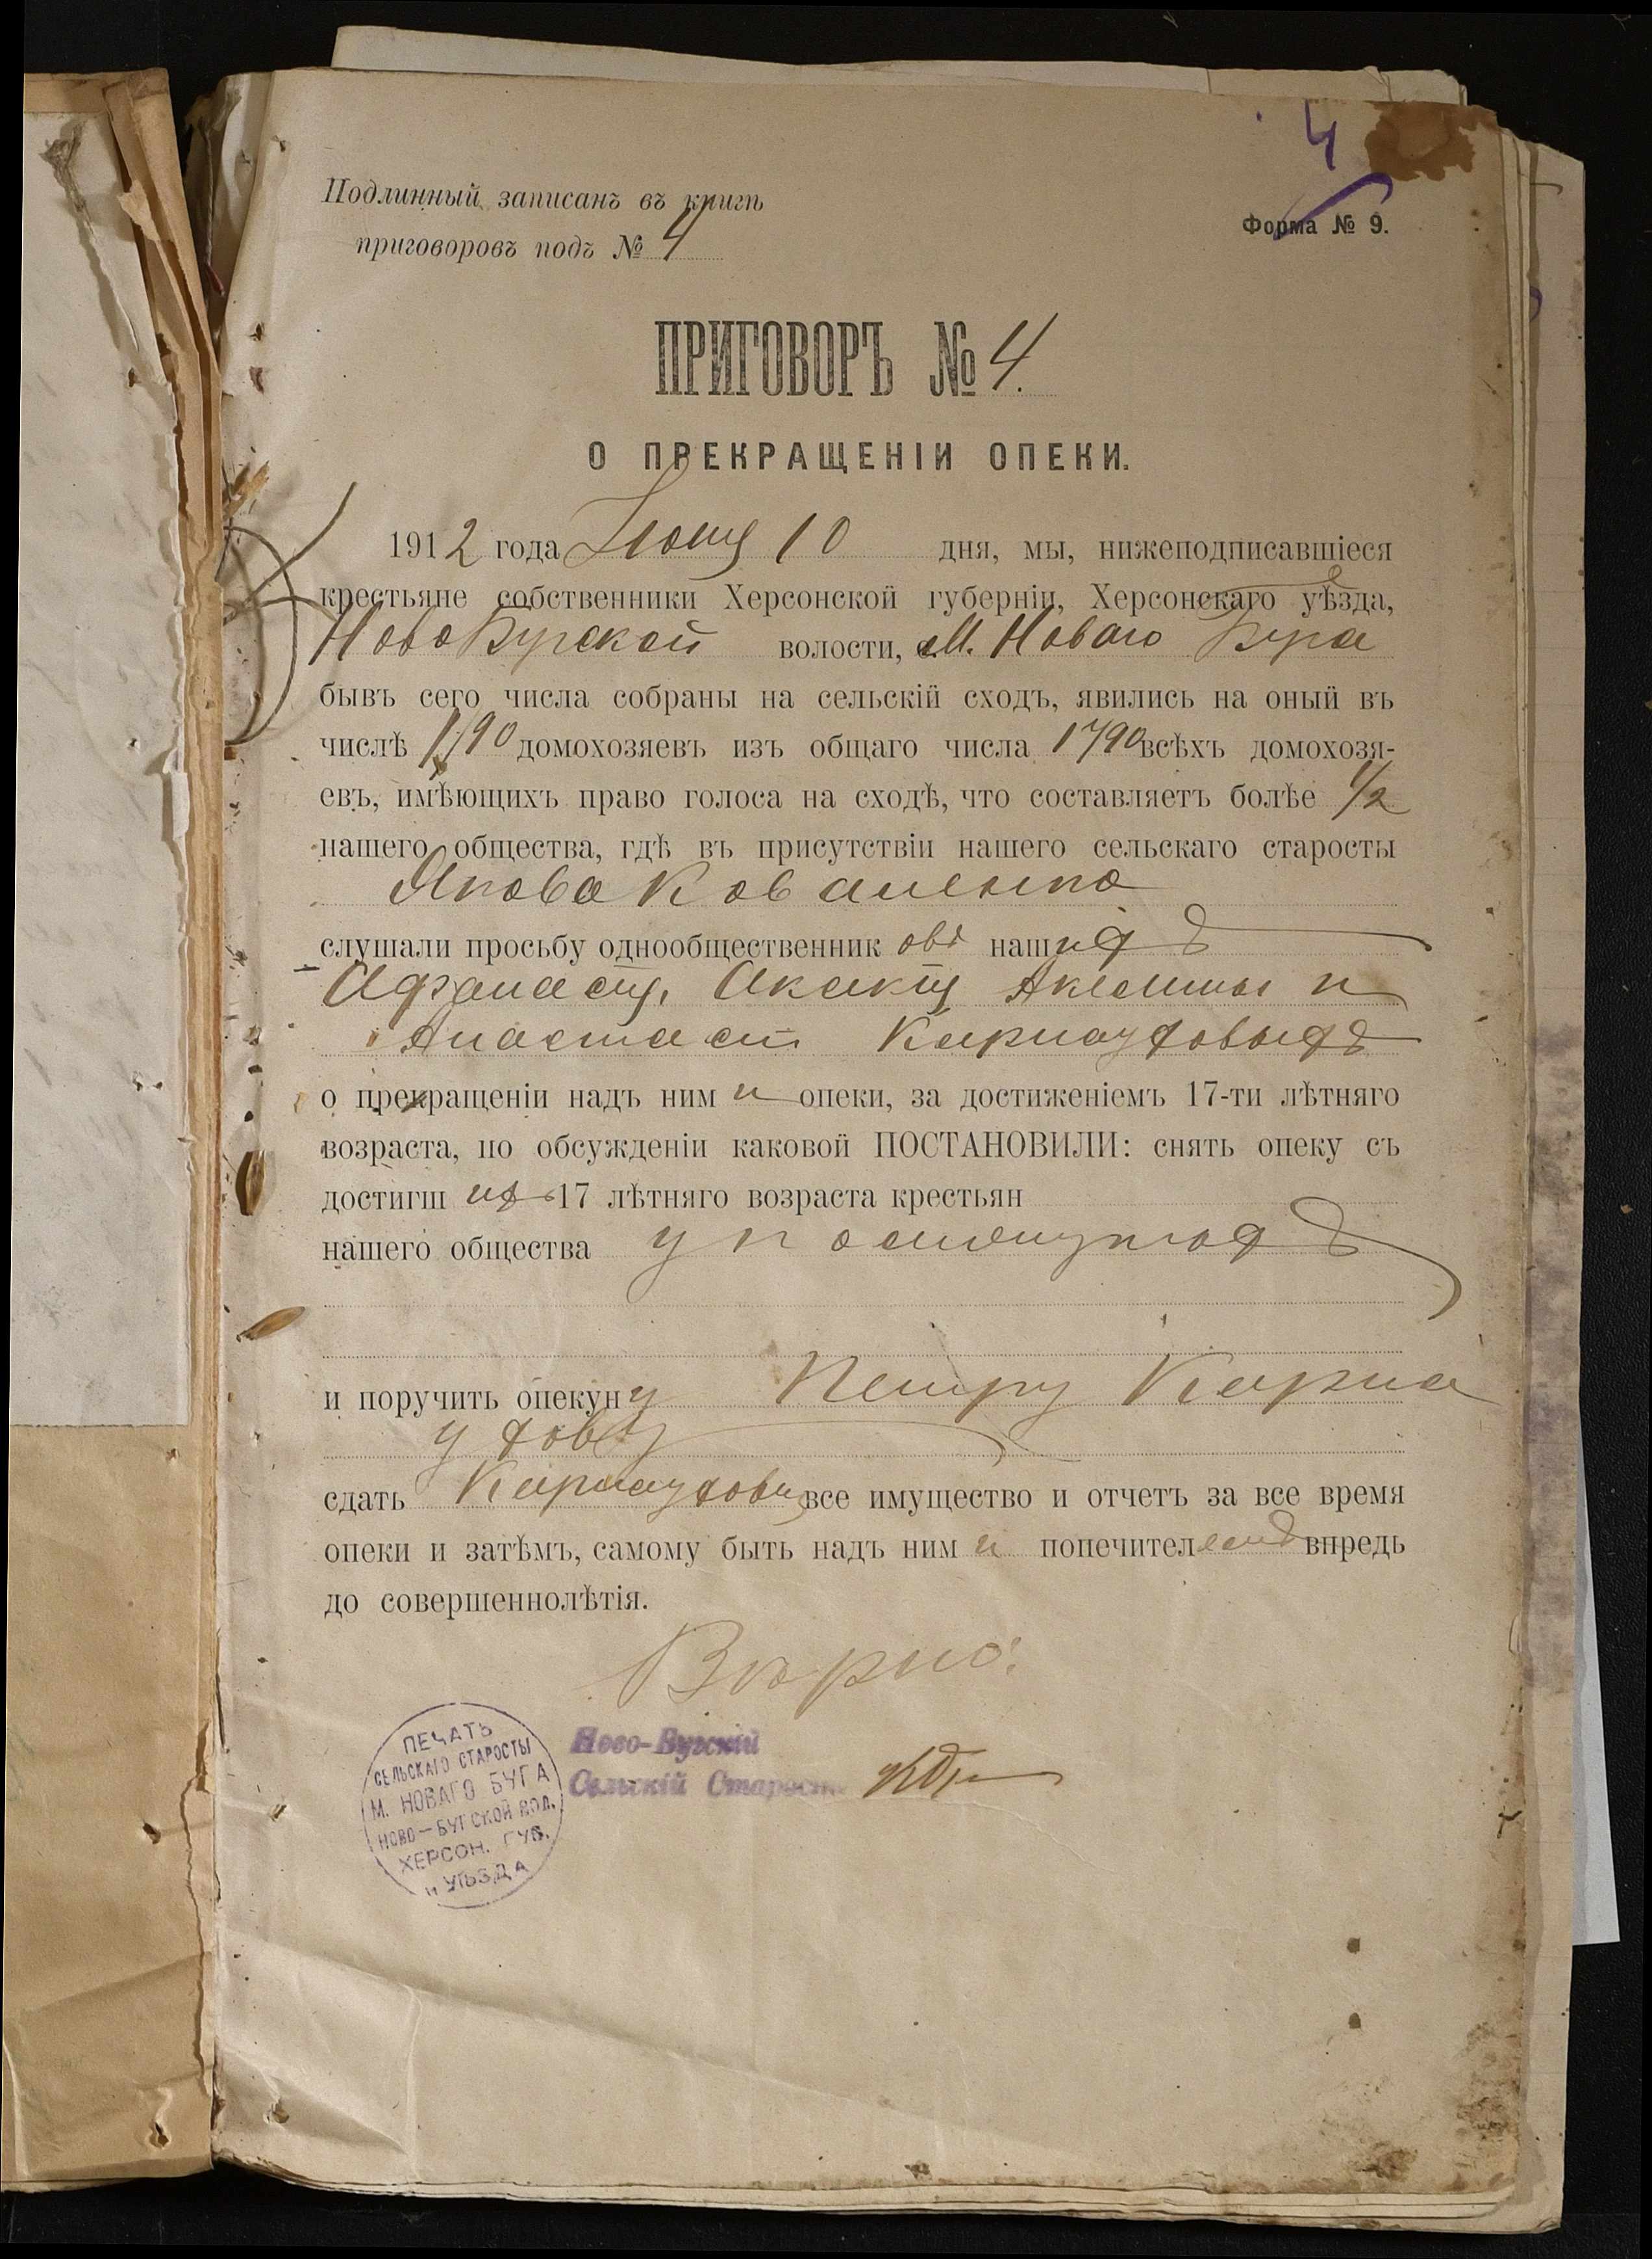 4
Подлинный записанъ въ книгѣ
приговоровъ подъ № 4
Форма № 9.
ПРИГОВОРЪ № 4.
О ПРЕКРАЩЕНІИ ОПЕКИ.
1912 года Іюня 10 дня, мы, нижеподписавшіеся
крестьяне собственники Херсонской губерніи, Херсонскаго уѣзда,
Ново Бугской волости, М. Новаго Буга
бывъ сего числа собраны на сельскій сходъ, явились на оный въ
числѣ домохозяевъ изъ общаго числа 1790 всѣхъ домохозя-
евъ, имѣющихъ право голоса на сходѣ, что составляетъ болѣе 1/2
нашего общества, гдѣ въ присутствіи нашего сельскаго старосты
Якова Коваленко
слушали просьбу однообщественник овъ нашихъ
Афанасія, Акакія Акелины и
Анастасіи Карнауховыхъ
о прекращеніи надъ ним и опеки, за достиженіемъ 17-ти лѣтняго
возраста, по обсужденіи каковой ПОСТАНОВИЛИ: снять опеку съ
достигш ихъ 17 лѣтняго возраста крестьян
нашего общества упомянутыхъ
и поручить опекуну Петру Карна
ухову
сдать Карнауховы все имущество и отчетъ за все время
опеки и затѣмъ, самому быть надъ ним и попечителемъ впредь
до совершеннолѣтія.
Вѣрно:
Ново-Бугскій
Сельскій Староста
ПЕЧАТЬ
СЕЛЬСКАГО СТАРОСТЫ
М. НОВАГО БУГА
НОВО-БУГСКОЙ ВОЛ.
ХЕРСОН. ГУБ.
и УѢЗДА